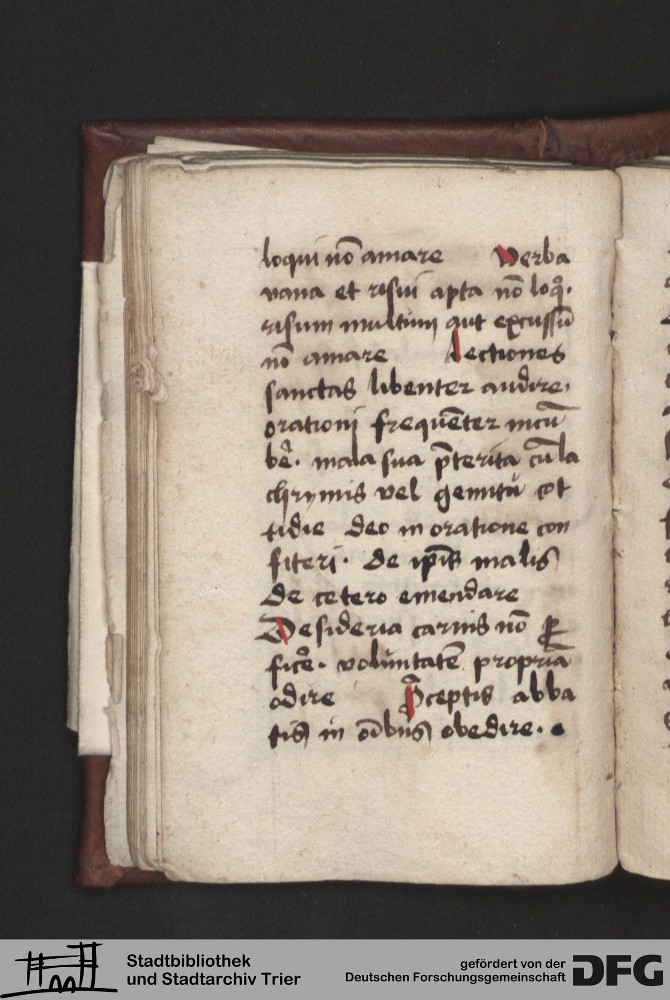 loqui nō amare Verba
vana et risui apta nō loqͥ.
risum multum aut excussū
nō amare Lectiones
sanctas libenter audire.
orationi frequēter incū
bē. mala sua p̄terita cū la
chrymis vel gemitū cot
tidie deo in oratione con
fiteri. de ip̄is malis
de cetero emendare
Desideria carnis nō ꝑ
ficē. voluntatē propriā
odire P̄ceptis abba
tis in oībus obedire.
Stadtbibliothek
und Stadtarchiv Trier
gefördert von der
Deutschen Forschungsgemeinschaft
DFG